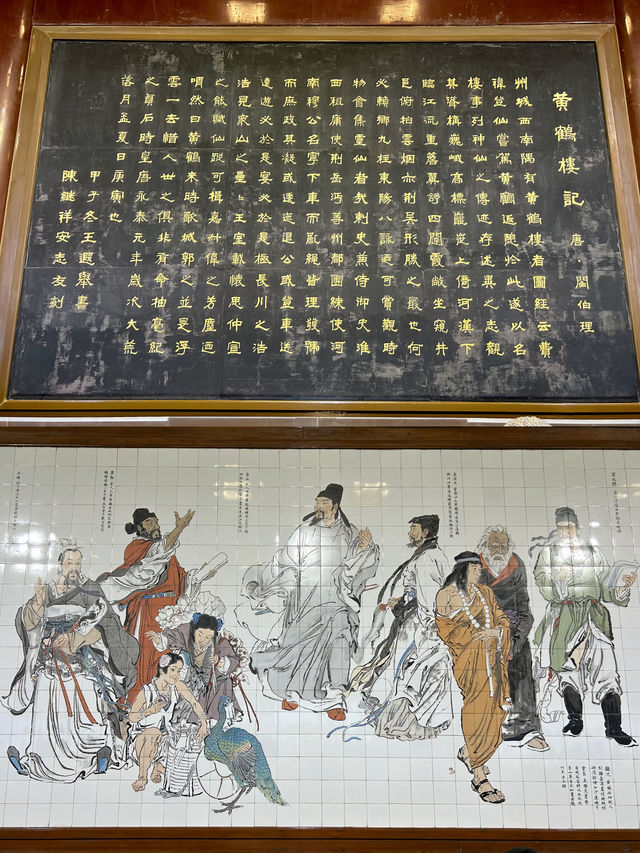 黃鶴樓記
唐·閻伯理
州城西南隅有黃鶴樓者圖經云費
禕登仙嘗駕黃鶴返憩於此遂以名
樓事列神仙之傳迹存述異之志觀
其聳構巍峨高標巃嵸上倚河漢下
臨江流重簷翼舒四闥霞敞坐窺井
邑俯拍雲烟亦荆吳形勝之最也何
必賴鄉九柱東陽八詠乃可賞觀時
物會集靈仙者哉刺史兼侍御史淮
西租庸使荆岳沔等州都團練使河
南穆公名寧下車而亂繩皆理發號
而庶政其凝或逶迤退公或登車送
遠遊必於是宴必於是極長川之浩
浩見衆山之壘壘王室載懷思仲宣
之能賦仙蹤可揖嘉叔偉之芳塵迺
喟然曰黃鶴來時歌城郭之並是浮
雲一去惜人世之俱非有命抽毫紀
之貞石時皇唐永泰元年歲次大荒
落月孟夏日庚寅也
甲子冬王遐舉書
陳繼祥安志友刻